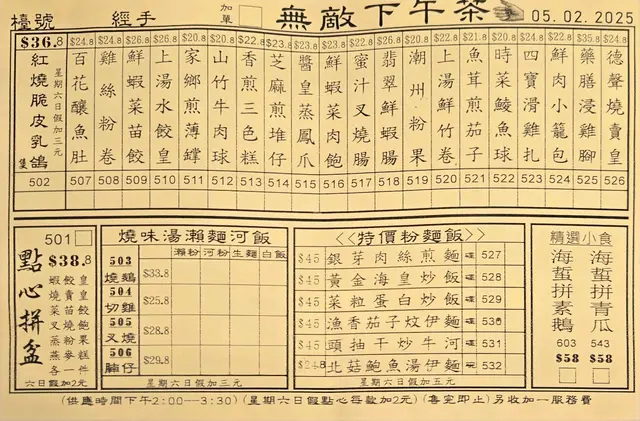 檯號 經手 加單 無敵下午茶 05.02.2025
$36.8
紅燒脆皮乳鴿 隻
星期六日假加三元
502
百花釀魚肚 507
雞絲粉卷 508
鮮蝦菜苗餃 509
上湯水餃皇 510
家鄉煎薄罉 511
山竹牛肉球 512
香煎三色糕 513
芝麻煎堆仔 514
醬皇蒸鳳爪 515
鮮蝦菜肉飽 516
蜜汁叉燒腸 517
翡翠鮮蝦腸 518
潮州粉果 519
上湯鮮竹卷 520
魚茸煎茄子 521
時菜鯪魚球 522
四寶滑雞扎 523
鮮肉小籠包 524
藥膳浸雞腳 525
德聲燒賣皇 526
501
點心拼盆
$38.8
皇皇飽糕件
餃賣苗粉一
蝦燒菜蒸各
六日假加2元
燒味湯瀨麵河飯
瀨粉 河粉 生麵 白飯
503 燒鵝 $33.8
504 切雞 $25.8
505 叉燒 $28.8
506 腩仔 $29.8
星期六日假加三元
<<特價粉麵飯>>
$45 銀芽肉絲煎麵 527
$45 黃金海皇炒飯 528
$45 菜粒蛋白炒飯 529
$45 漁香茄子炆伊麵 530
$45 頭抽干炒牛河 531
北菇鮑魚湯伊麵 532
星期六日假加五元
精選小食
海蜇拼素鵝 603 $58
海蜇拼青瓜 543 $58
(供應時間下午2:00---3:30) (星期六日假點心每款加2元) (售完即止) 另收加一服務費